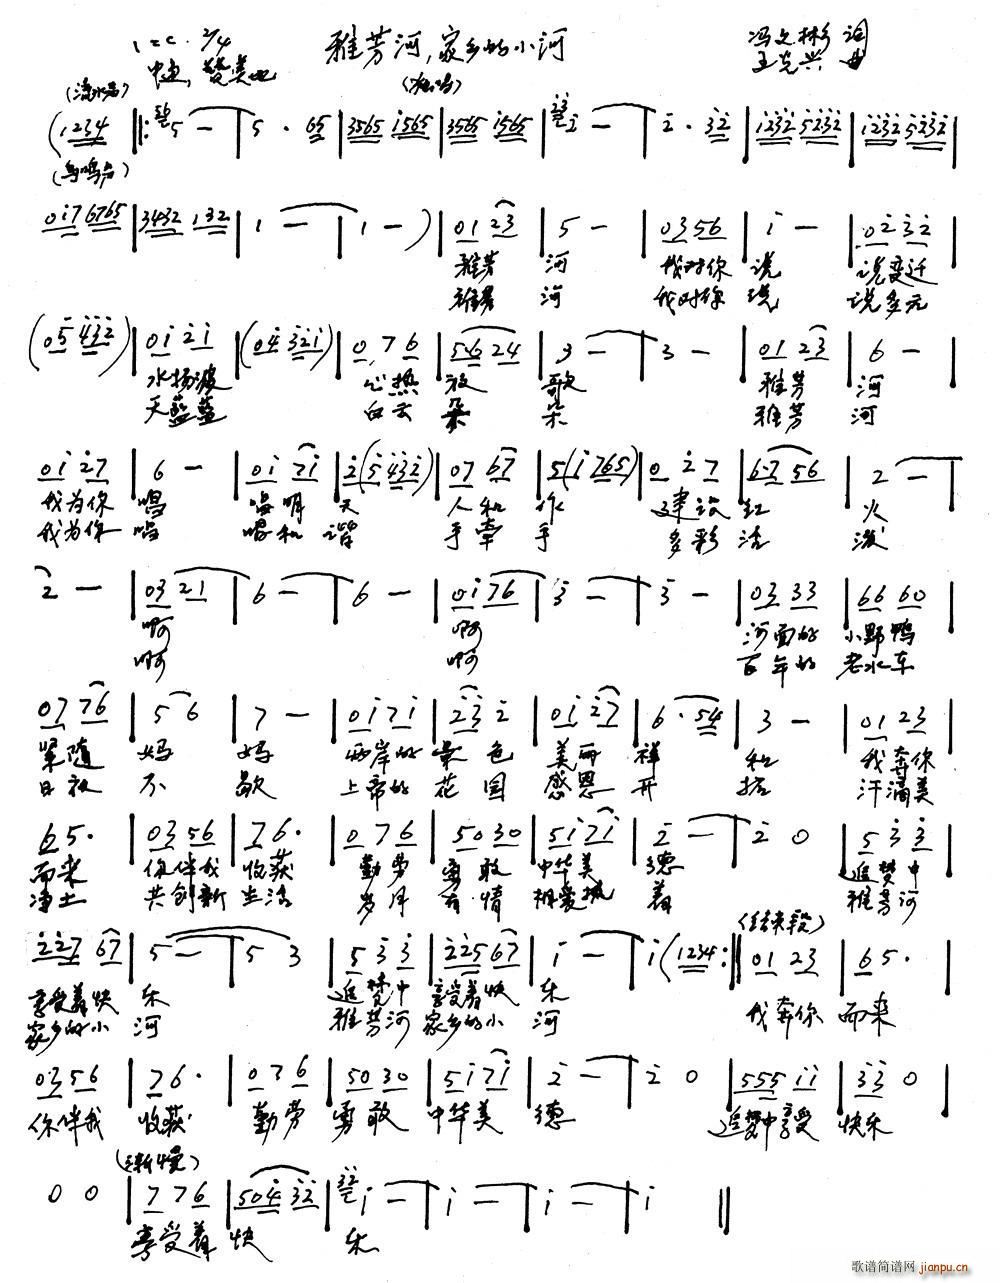 1=C 2/4
雅芳河,家乡的小河
冯文彬 词
王克兴 曲
中速,赞美地
(流水声)
(独唱)
(1234 ‖: 5 — | 5 · 65 | 3565 i565 | 3565 i565 | 2 — | 2 · 32 | 1232 5232 | 1232 5232 |
(鸟鸣声)
0i7 6765 | 3432 132 | 1 — | 1 — ) | 01 23 | 5 — | 03 56 | i — | 02 32 |
雅芳 河 我对你 说 说变迁
雅芳 河 我对你 说 说多元
(05 432) | 0i 2i | (04 32i) | 0 7 6 | 5·6 24 | 3 — | 3 — | 01 23 | 6 — |
水扬波 心热 放 歌 雅芳 河
天蓝蓝 白云 朵 朵 雅芳 河
0i 27 | 6 — | 0i 7i | 2 (5 432) | 07 67 | 5 (i 765) | 0 2 7 | 6·7 56 | 2 — |
我为你 唱 唱明 天 人和 作 建设 红 火
我为你 唱 唱和 谐 手牵 手 多彩 活 泼
2 — | 03 21 | 6 — | 6 — | 0i 76 | 3 — | 3 — | 03 33 | 66 60 |
啊 啊 河面的 小野鸭
啊 啊 百年的 老水车
07 76 | 5 6 | 7 — | 0i 7i | 2 3 2 | 0i 27 | 6 · 54 | 3 — | 01 23 |
紧随 妈 妈 两岸的 景 色 美丽 祥 和 我奔你
日夜 不 歇 上帝的 花 园 感恩 开 拓 汗洒美
65· | 03 56 | 76· | 0 7 6 | 50 30 | 5i 7i | 2 — | 2 0 | 5 3 3 |
而来 你伴我 收获 勤劳 勇敢 中华美 德 追梦中
净土 共创新 生活 岁月 有情 相爱 善 雅芳河
(结束段)
227 67 | 5 — | 5 3 | 5 3 3 | 225 67 | i — | i (1234 :‖ 01 23 | 65· |
享受着快 乐 追梦中 享受着快 乐 我奔你 而来
家乡的小 河 雅芳河 家乡的小 河
03 56 | 76· | 0 7 6 | 50 30 | 5i 7i | 2 — | 2 0 | 555 ii | 33 0 |
你伴我 收获 勤劳 勇敢 中华美 德 追梦中享受 快乐
(渐慢)
0 0 | 7 7 6 | 504 32 | i — | i — | i — | i ‖
享受着 快 乐
歌谱简谱网
jianpu.cn